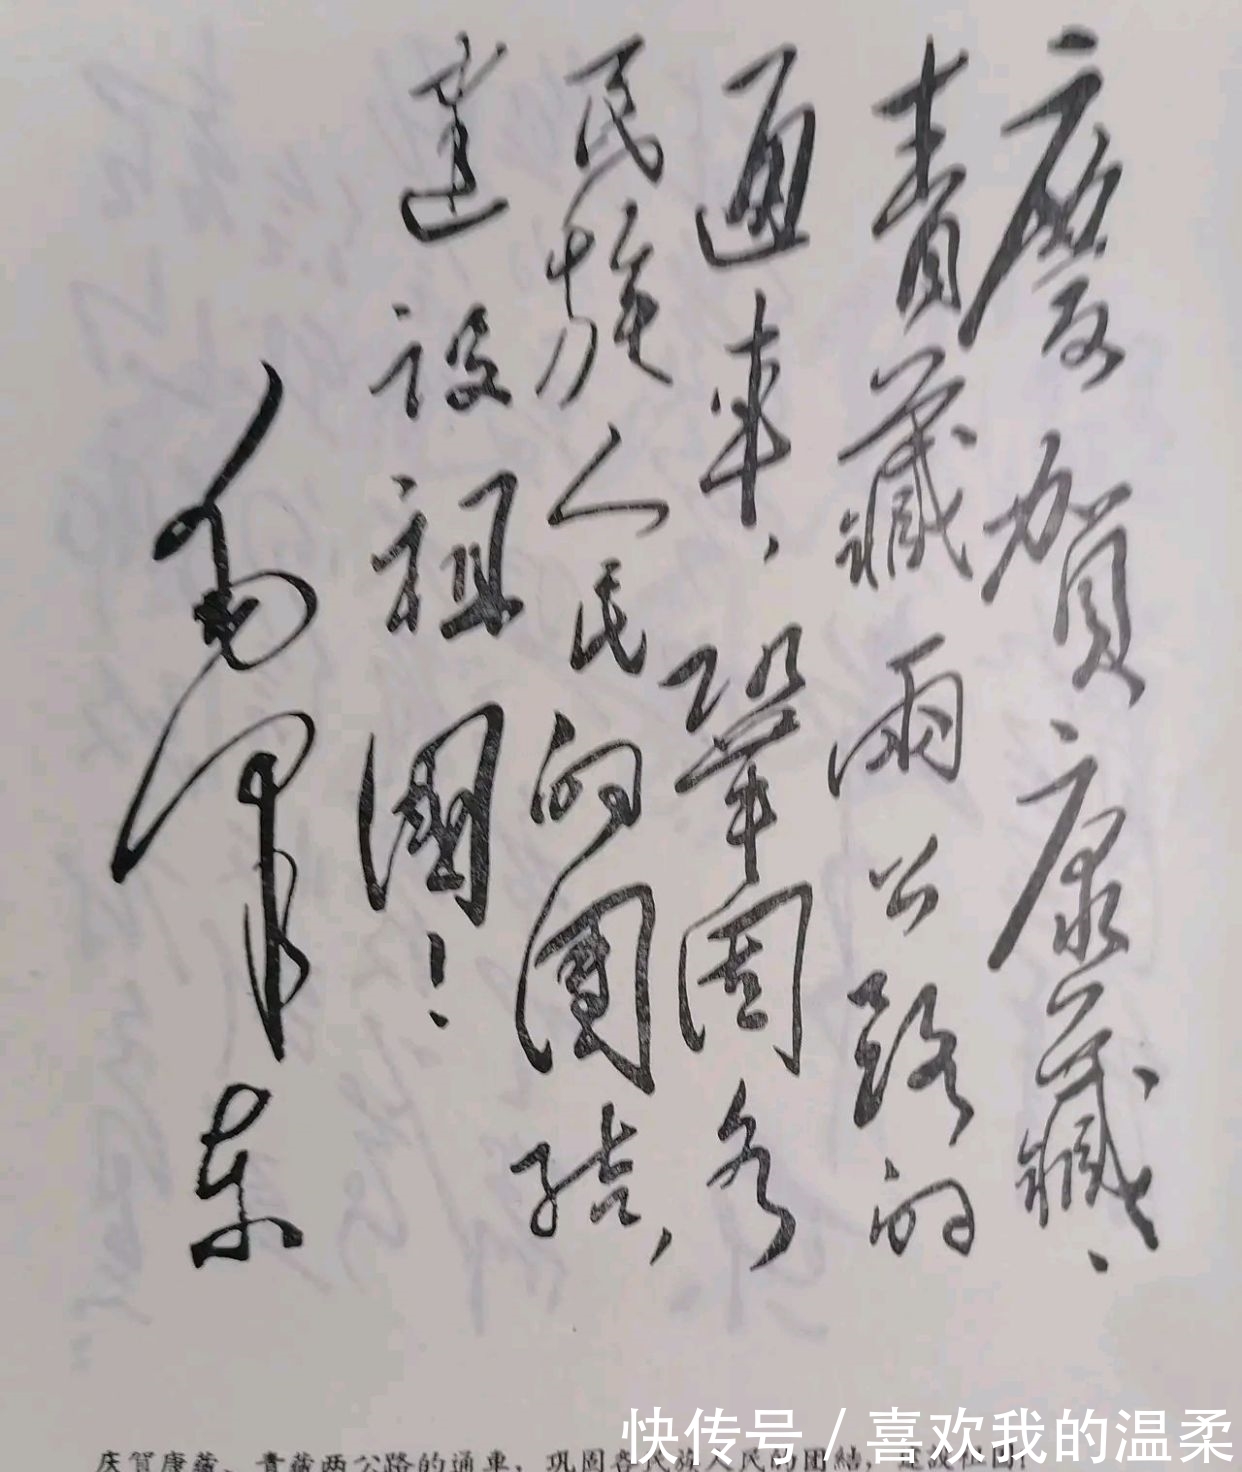 慶賀康藏、
青藏兩公路的
通車，鞏固各
民族人民的團結，
建設祖國！
毛澤東
庆賀康藏、青藏两公路的通車，巩固各民族人民的团結，建設祖国！
快传号 / 喜欢我的温柔